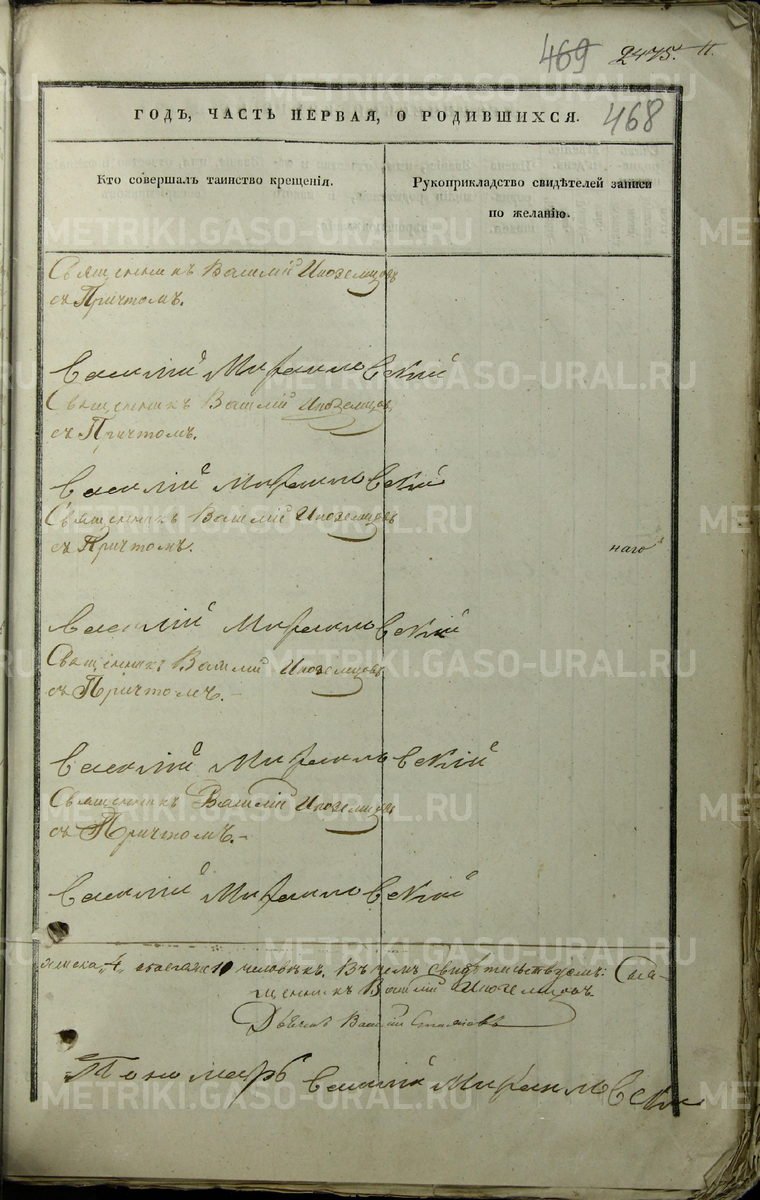 469 2475.
468
ГОДЪ, ЧАСТЬ ПЕРВАЯ, О РОДИВШИХСЯ.
Кто совершалъ таинство крещенія.
Рукоприкладство свидѣтелей записи
по желанію.
Священникъ Василій Иноземцовъ
съ Причтомъ.
Василій
Священникъ Василій Иноземцовъ
съ Причтомъ.
Василій
Священникъ Василій Иноземцовъ
съ Причтомъ.
наго
Василій
Священникъ Василій Иноземцовъ
съ Причтомъ.
Василій
Священникъ Василій Иноземцовъ
съ Причтомъ.
Василій
4, 10 человѣкъ. Въ чемъ свидѣтельствуемъ: Свя-
щенникъ Василій Иноземцовъ.
Василій
Пономарь Василій
METRIKI.GASO-URAL.RU